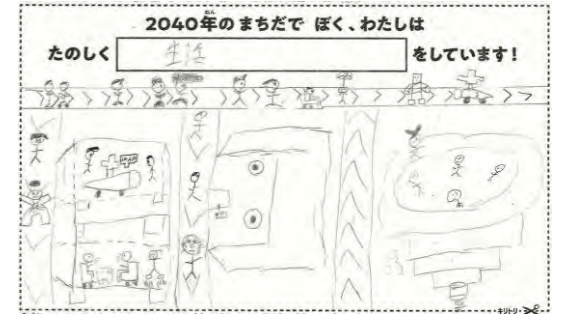 2040年のまちだで ぼく、わたしは
たのしく 生活 をしています!
キリトリ